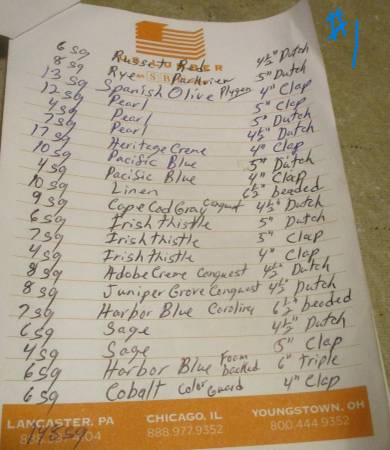 #1
6 sg Russet Red 4½" Dutch
8 sg Rye Parkview 5" Dutch
13 sg Spanish Olive Plygem 4" Clap
12 sg Pearl 5" Clap
4 sg Pearl 5" Dutch
7 sg Pearl 4½" Dutch
17 sg Heritage Creme 4" Clap
10 sg Pacific Blue 5" Dutch
4 sg Pacific Blue 4" Clap
10 sg Linen 6½" beaded
9 sg Cape Cod Gray Conquest 4½" Dutch
6 sg Irish thistle 5" Dutch
7 sg Irish thistle 5" Clap
4 sg Irish thistle 4" Clap
8 sg Adobe Creme Conquest 4½" Dutch
8 sg Juniper Grove Conquest 4½" Dutch
7 sg Harbor Blue Carolina 6½" beaded
6 sg Sage 4½" Dutch
4 sg Sage 5" Clap
6 sg Harbor Blue Foam backed 6" triple
6 sg Cobalt Color Guard 4" Clap
LANCASTER, PA CHICAGO, IL YOUNGSTOWN, OH
888.977.9352 800.444.9352